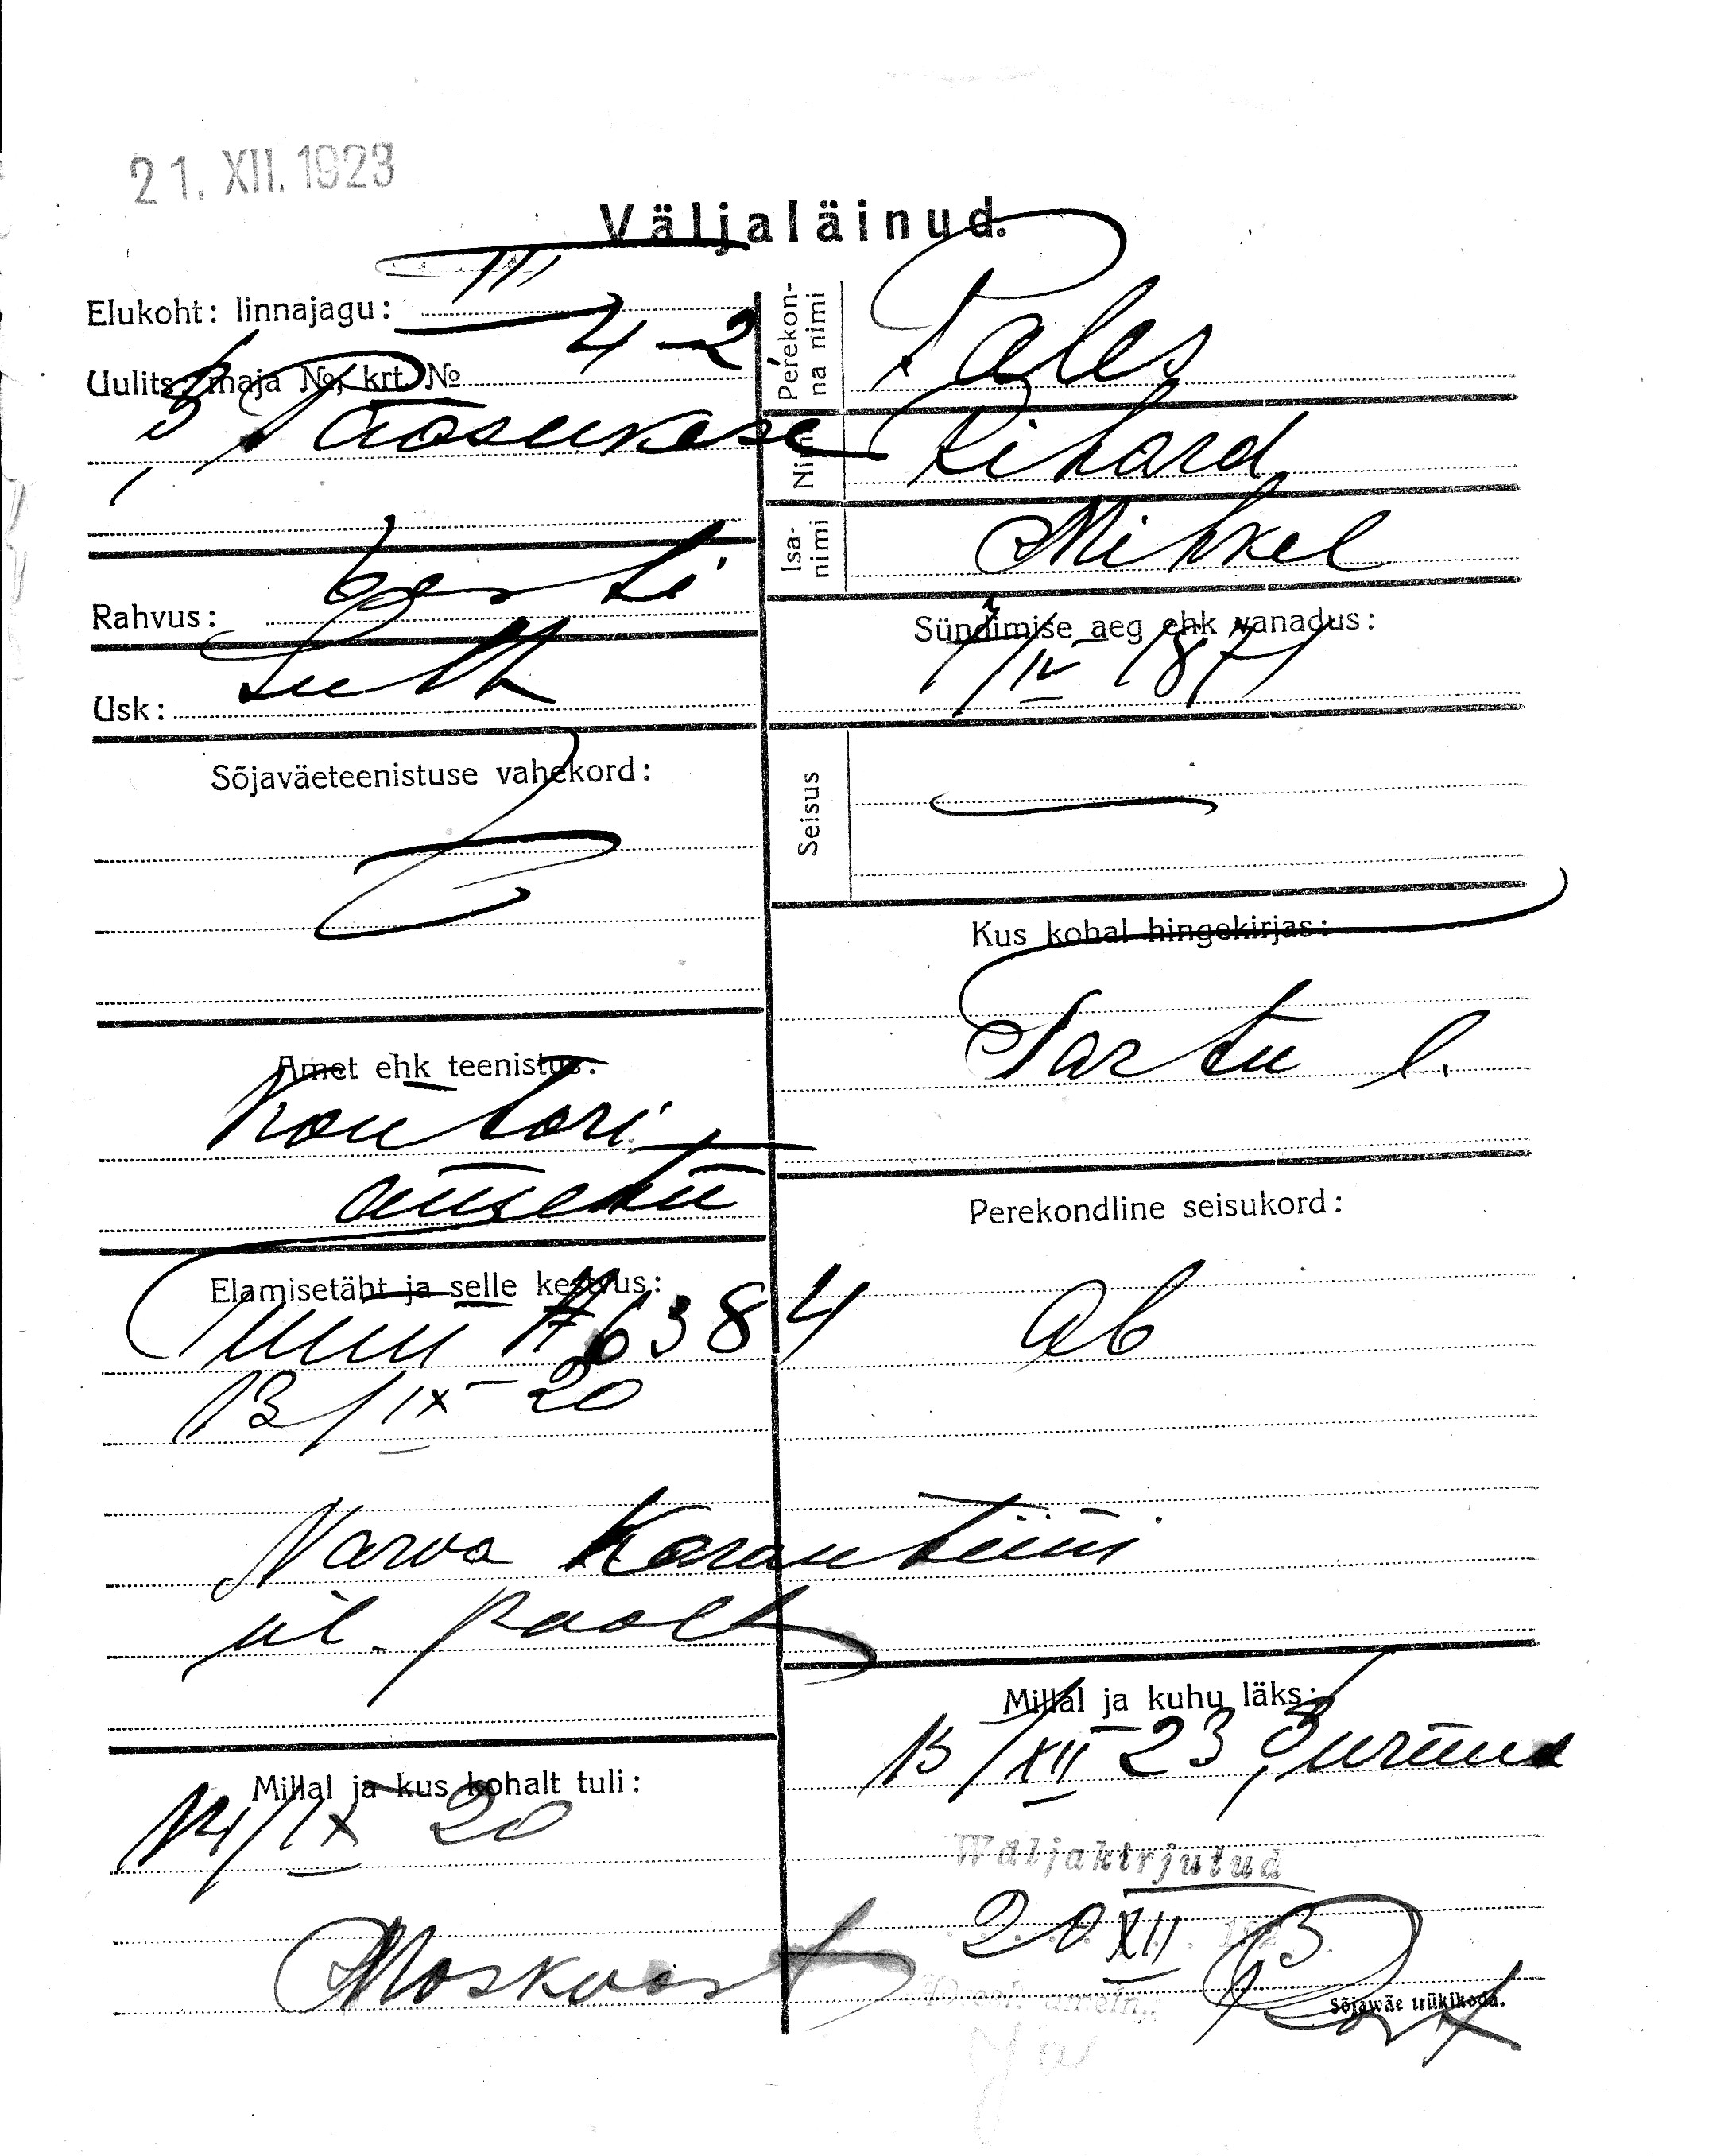 21. XII. 1923
Väljaläinud.
Elukoht: linnajagu: III
Uulits, maja №, krt. № 4-2
Pääsukese
Rahvus: Eesti
Usk: Luth
Sõjaväeteenistuse vahekord:
Amet ehk teenistus:
Kontori
ametn
Elamisetäht ja selle kestvus:
№ 6384
13/IX 20
Narva Karantiini
ül. poolt
Millal ja kus kohalt tuli:
14/IX 20
Moskvast
Perekonna nimi Pales
Nimi Rihard
Isanimi Mihkel
Sündimise aeg ehk vanadus:
1/IV 1871
Seisus —
Kus kohal hingekirjas:
Tartu l.
Perekondline seisukord:
Ab
Millal ja kuhu läks:
15/XII 23,
Wäljakirjutud
20 XII 1923
Sõjawäe trükikoda.